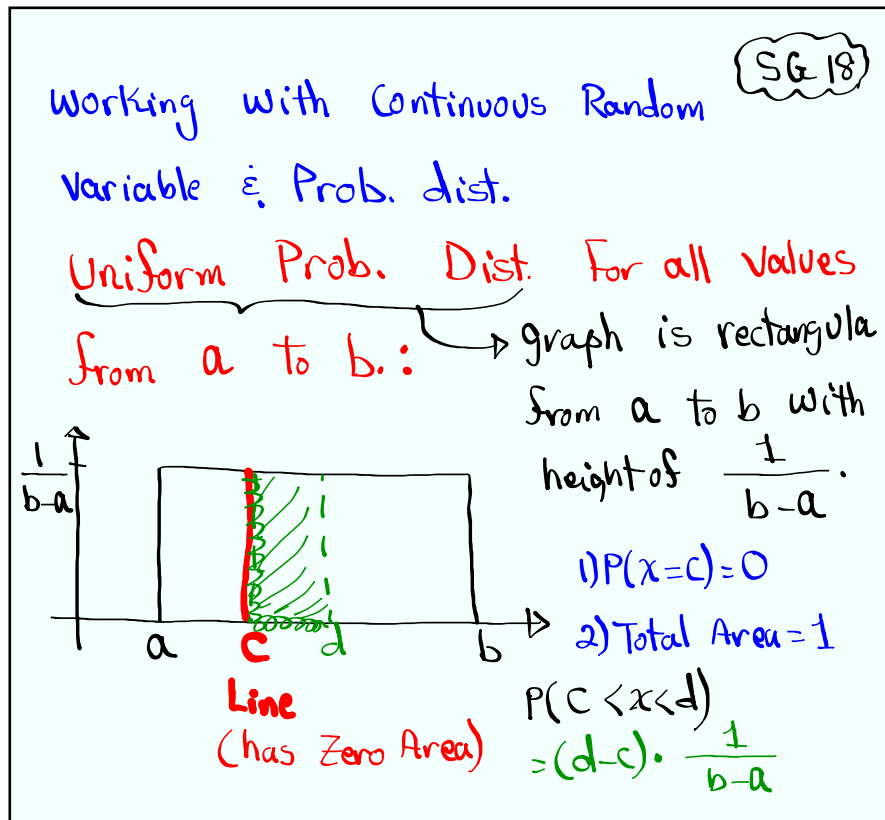 SG 18
Working with Continuous Random
Variable & Prob. dist.
Uniform Prob. Dist. For all values
from a to b.:
graph is rectangula
from a to b with
height of 1/(b-a).
1/(b-a)
a c d b
Line
(has Zero Area)
1) P(x=c)=0
2) Total Area=1
P(c<x<d)
=(d-c)· 1/(b-a)